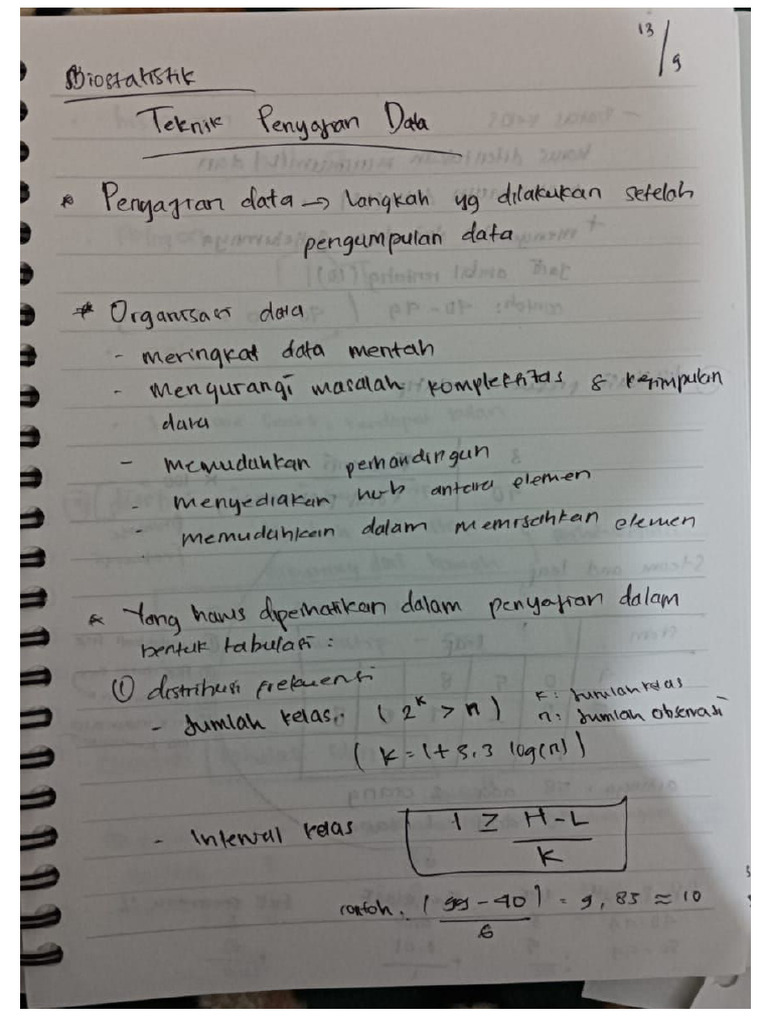 13/9
Biostatistik
Teknik Penyajian Data
* Penyajian data → langkah yg dilakukan setelah
pengumpulan data
* Organisasi data
- meringkat data mentah
- mengurangi masalah kompleksitas & kesimpulan
data
- memudahkan perbandingan
- menyediakan hub antara elemen
- memudahkan dalam memisahkan elemen
* Yang harus diperhatikan dalam penyajian dalam
bentuk tabulasi :
① distribusi frekuensi
- Jumlah kelas : ( 2^k > n ) k : Jumlah kelas
n : Jumlah observasi
( k = 1 + 3,3 log(n) )
- Interval kelas I ≥ H-L / K
contoh : (99-40) / 6 = 9,83 ≈ 10